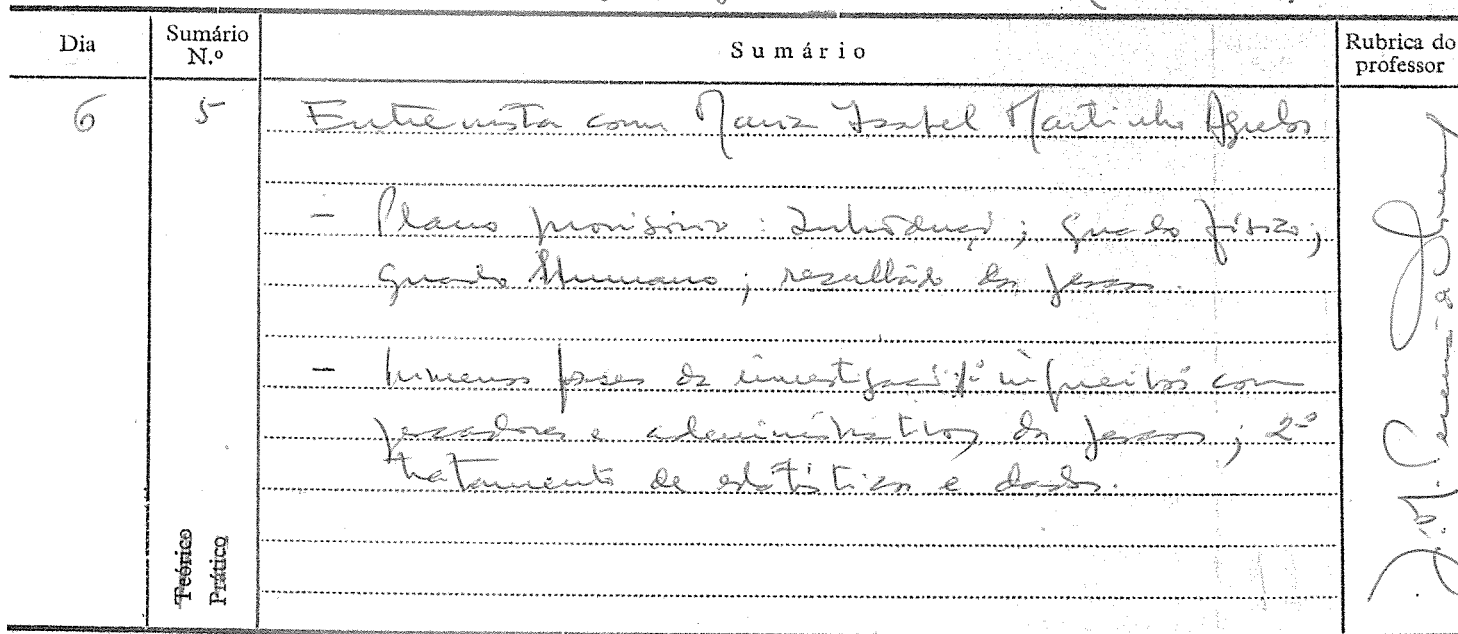 Dia
Sumário N.º
Sumário
Rubrica do professor
6
5
Entrevista com Maria Isabel Martinho
- Plano provisório: Introdução; quadro físico;
quadro Humano; resultado da pesca.
- fases da investigação: 1º inquéritos com
pescadores e administrativos da pesca; 2º
tratamento de estatísticas e dados.
Teórico
Prático